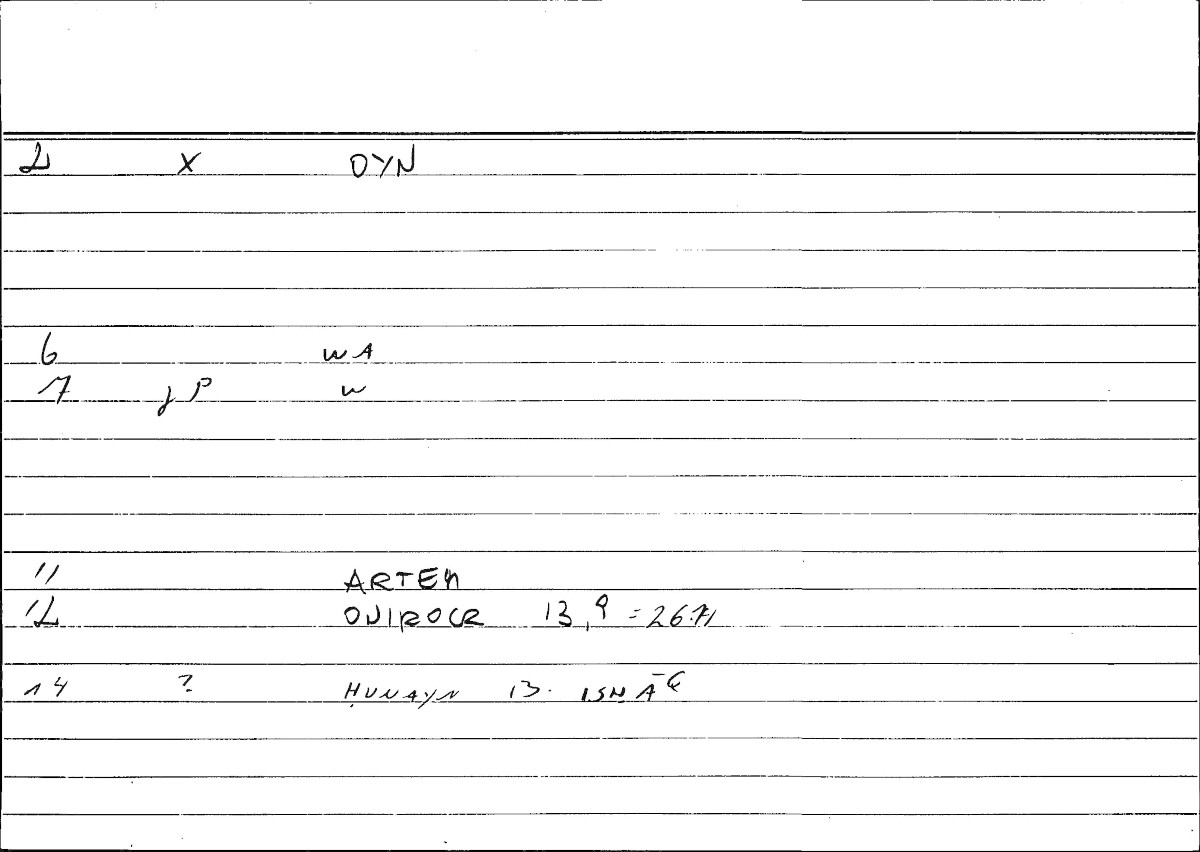 2 X DYN
6 WA
7 γ P W
11 ARTEM
12 ONIROCR 13,9 = 26.71
14 ? ḤUNAYN B. ISḤĀQ